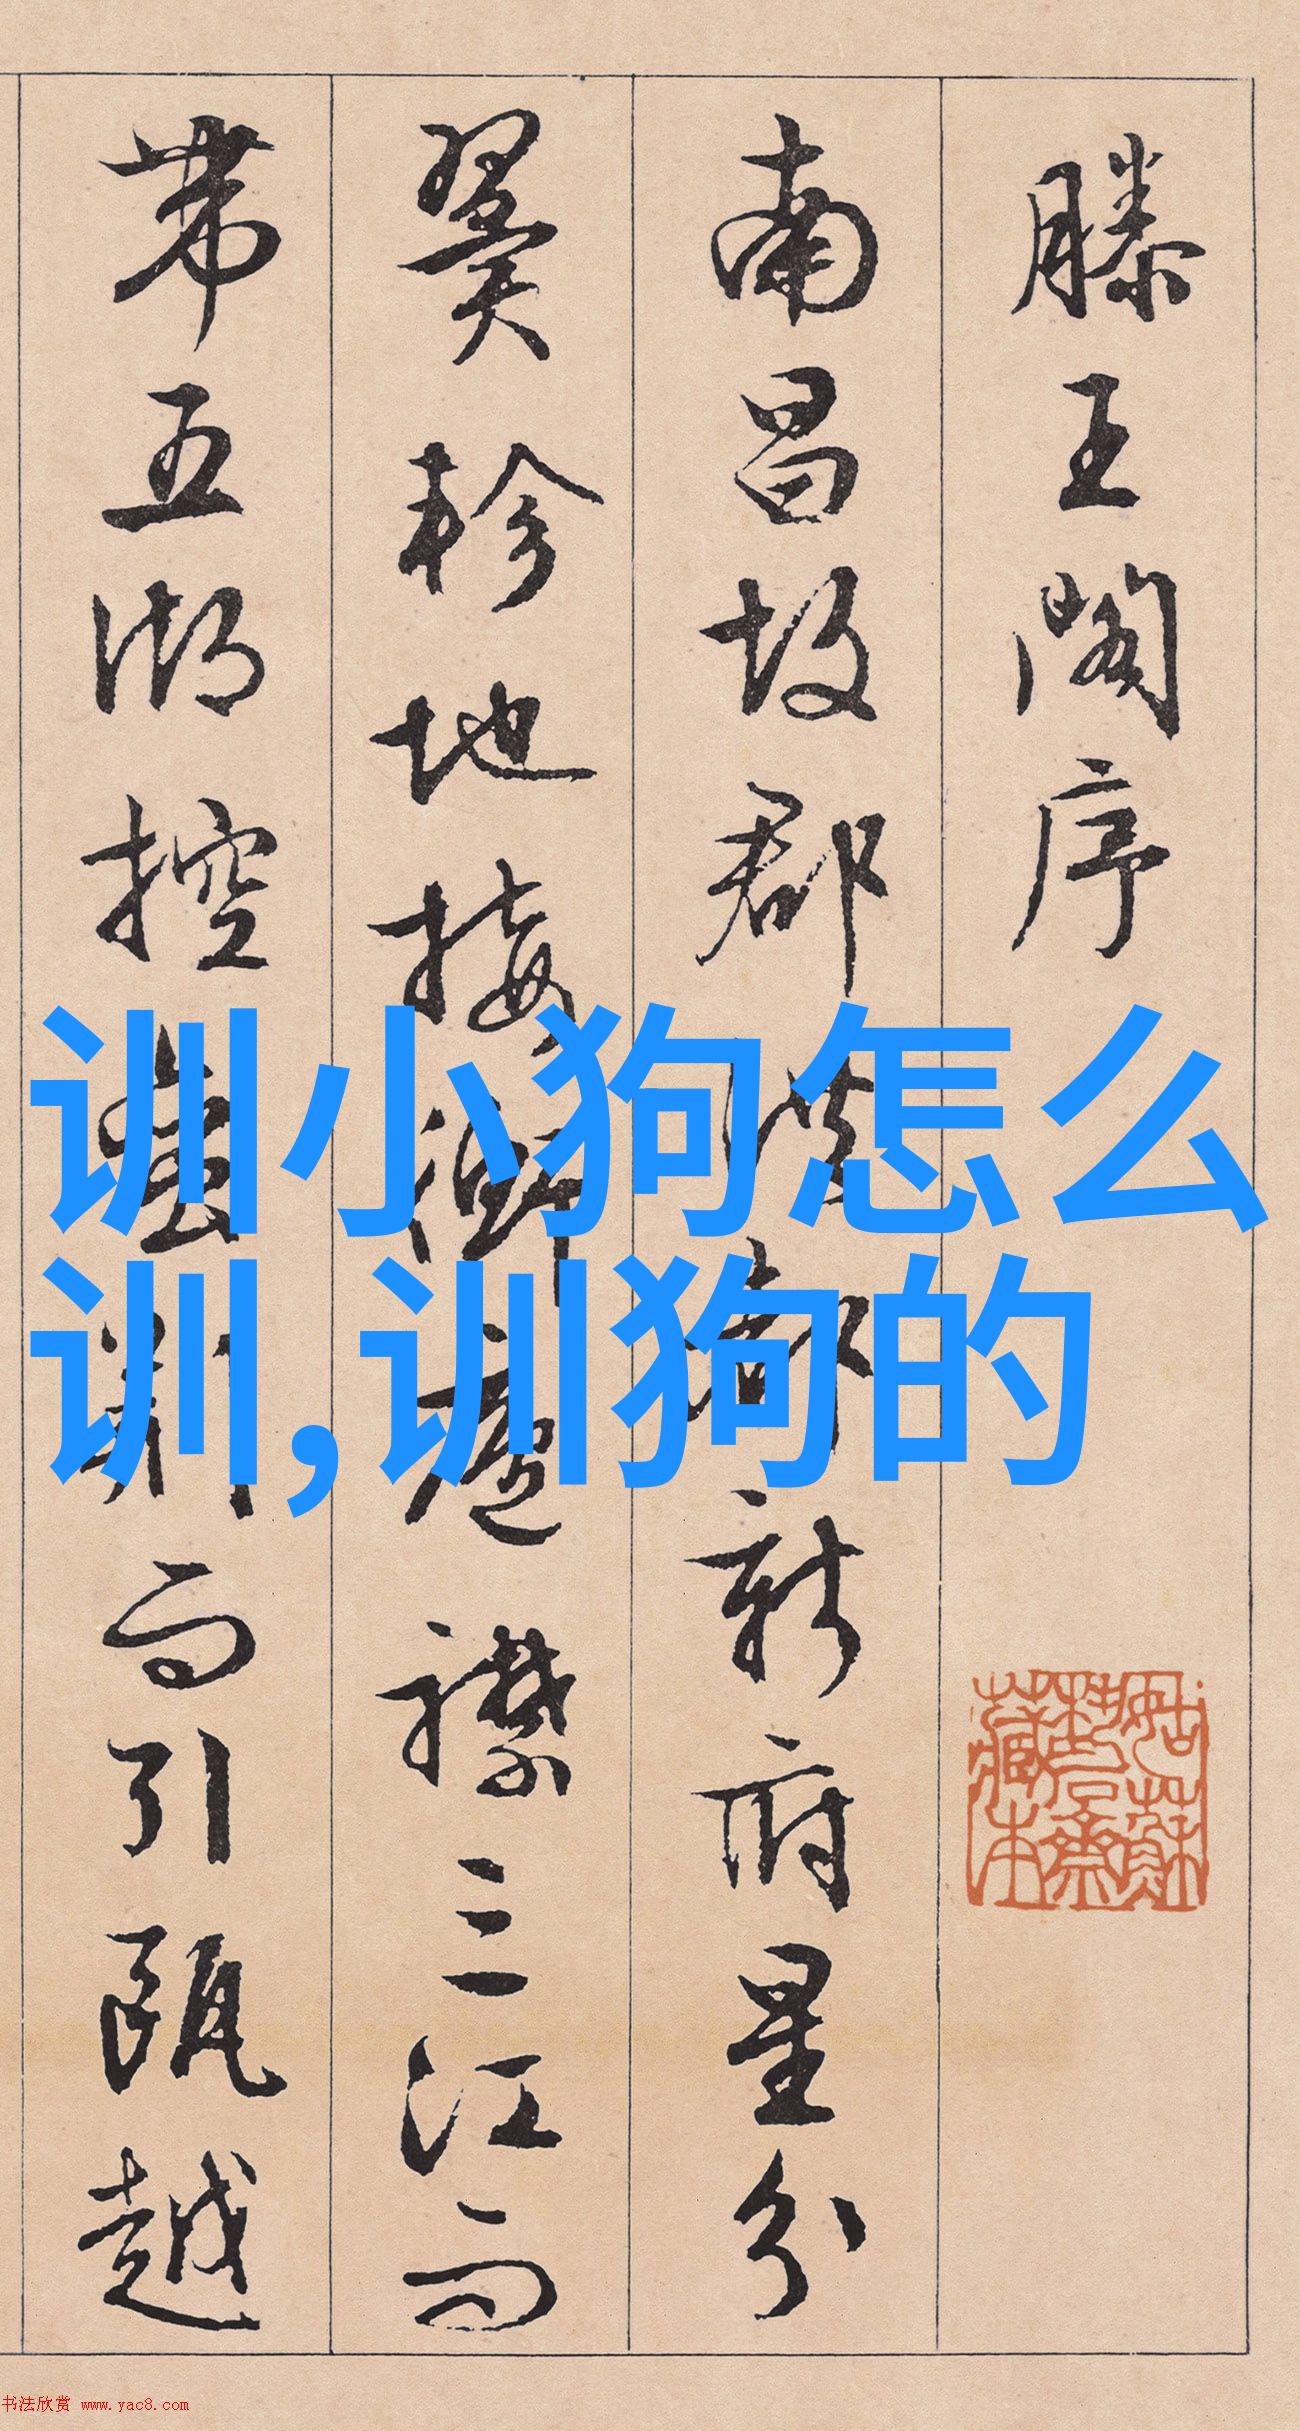 滕王阁序
南昌故郡洪都新府星分
翼轸地接衡庐襟三江而
带五湖控蛮荆而引瓯越
训小狗怎么
训,训狗的
姑苏
善斋
藏本
书法欣赏 www.yac8.com